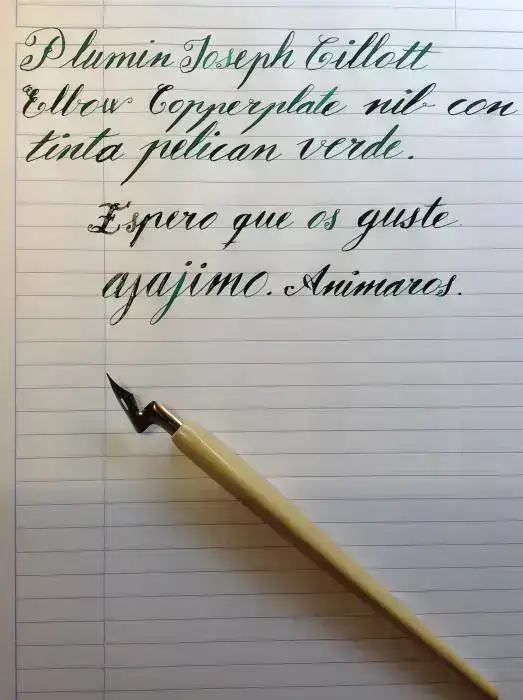 Plumin Joseph Gillott
Elbow Copperplate nib con
tinta pelican verde.
Espero que os guste
asajimo. Animaros.